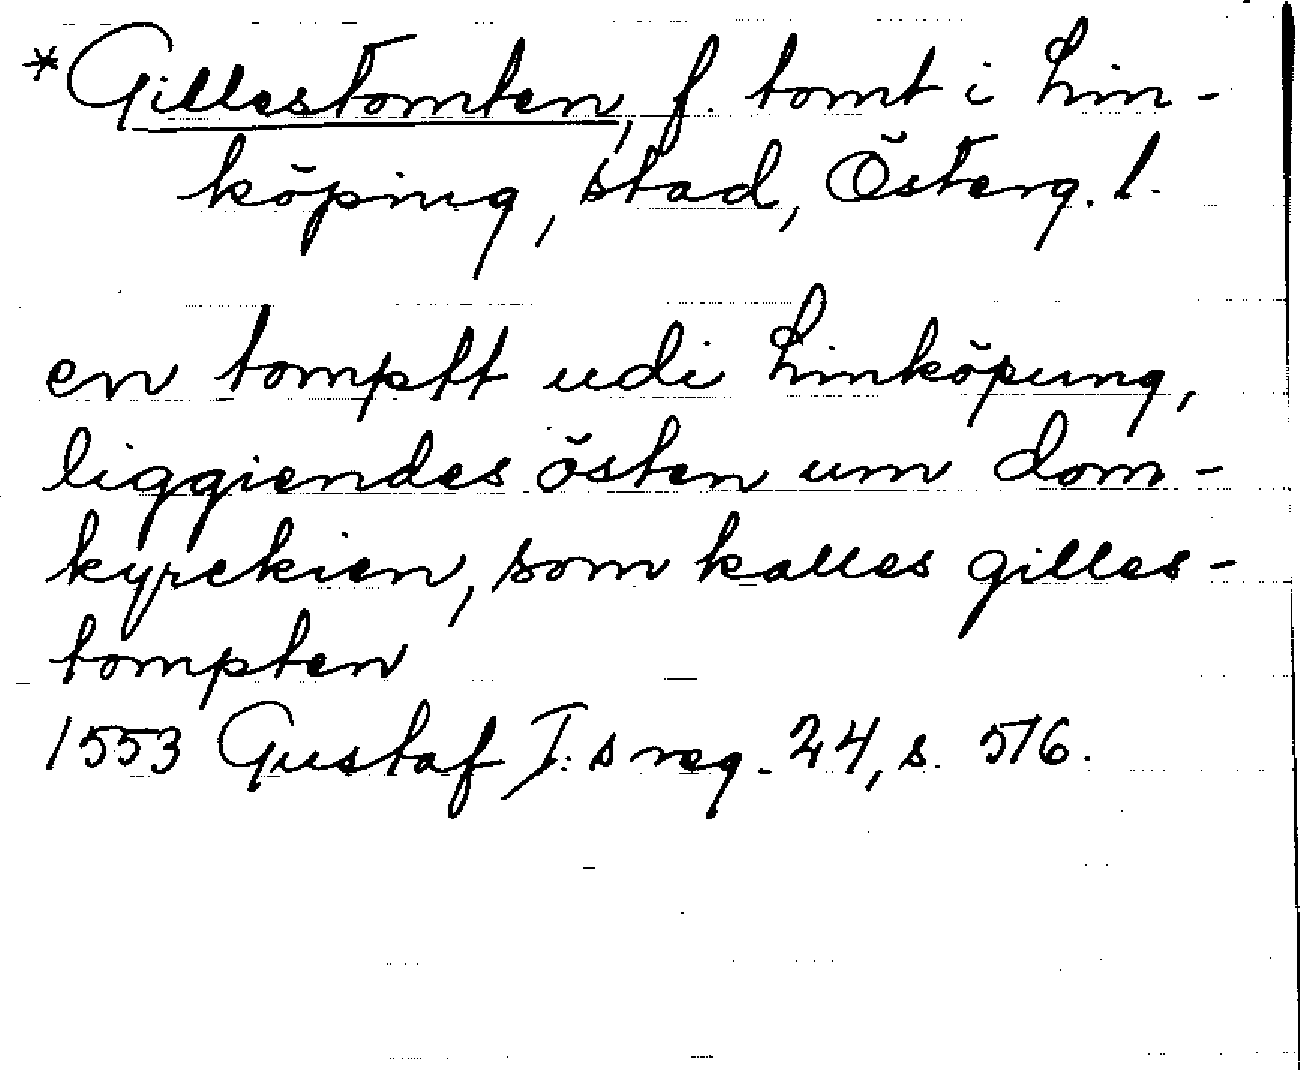 *Gillestomten, f. tomt i Lin-
köping, stad, Österg. l.
en tomptt udi Linköpung,
liggiendes östen um dom-
kyrckien, som kalles gilles-
tompten
1553 Gustaf I:s reg. 24, s. 516.